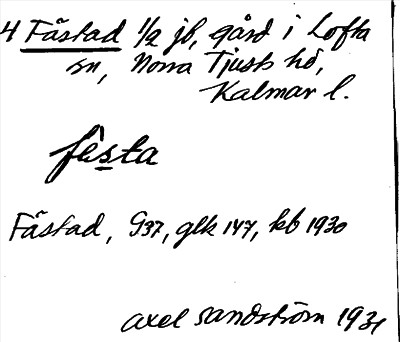 4 Fåstad 1/2 jb, gård i Lofta
sn, Norra Tjusts hd,
Kalmar l.
fèsta
Fåstad, G37, glk 147, kb 1930
Axel Sandström 1931